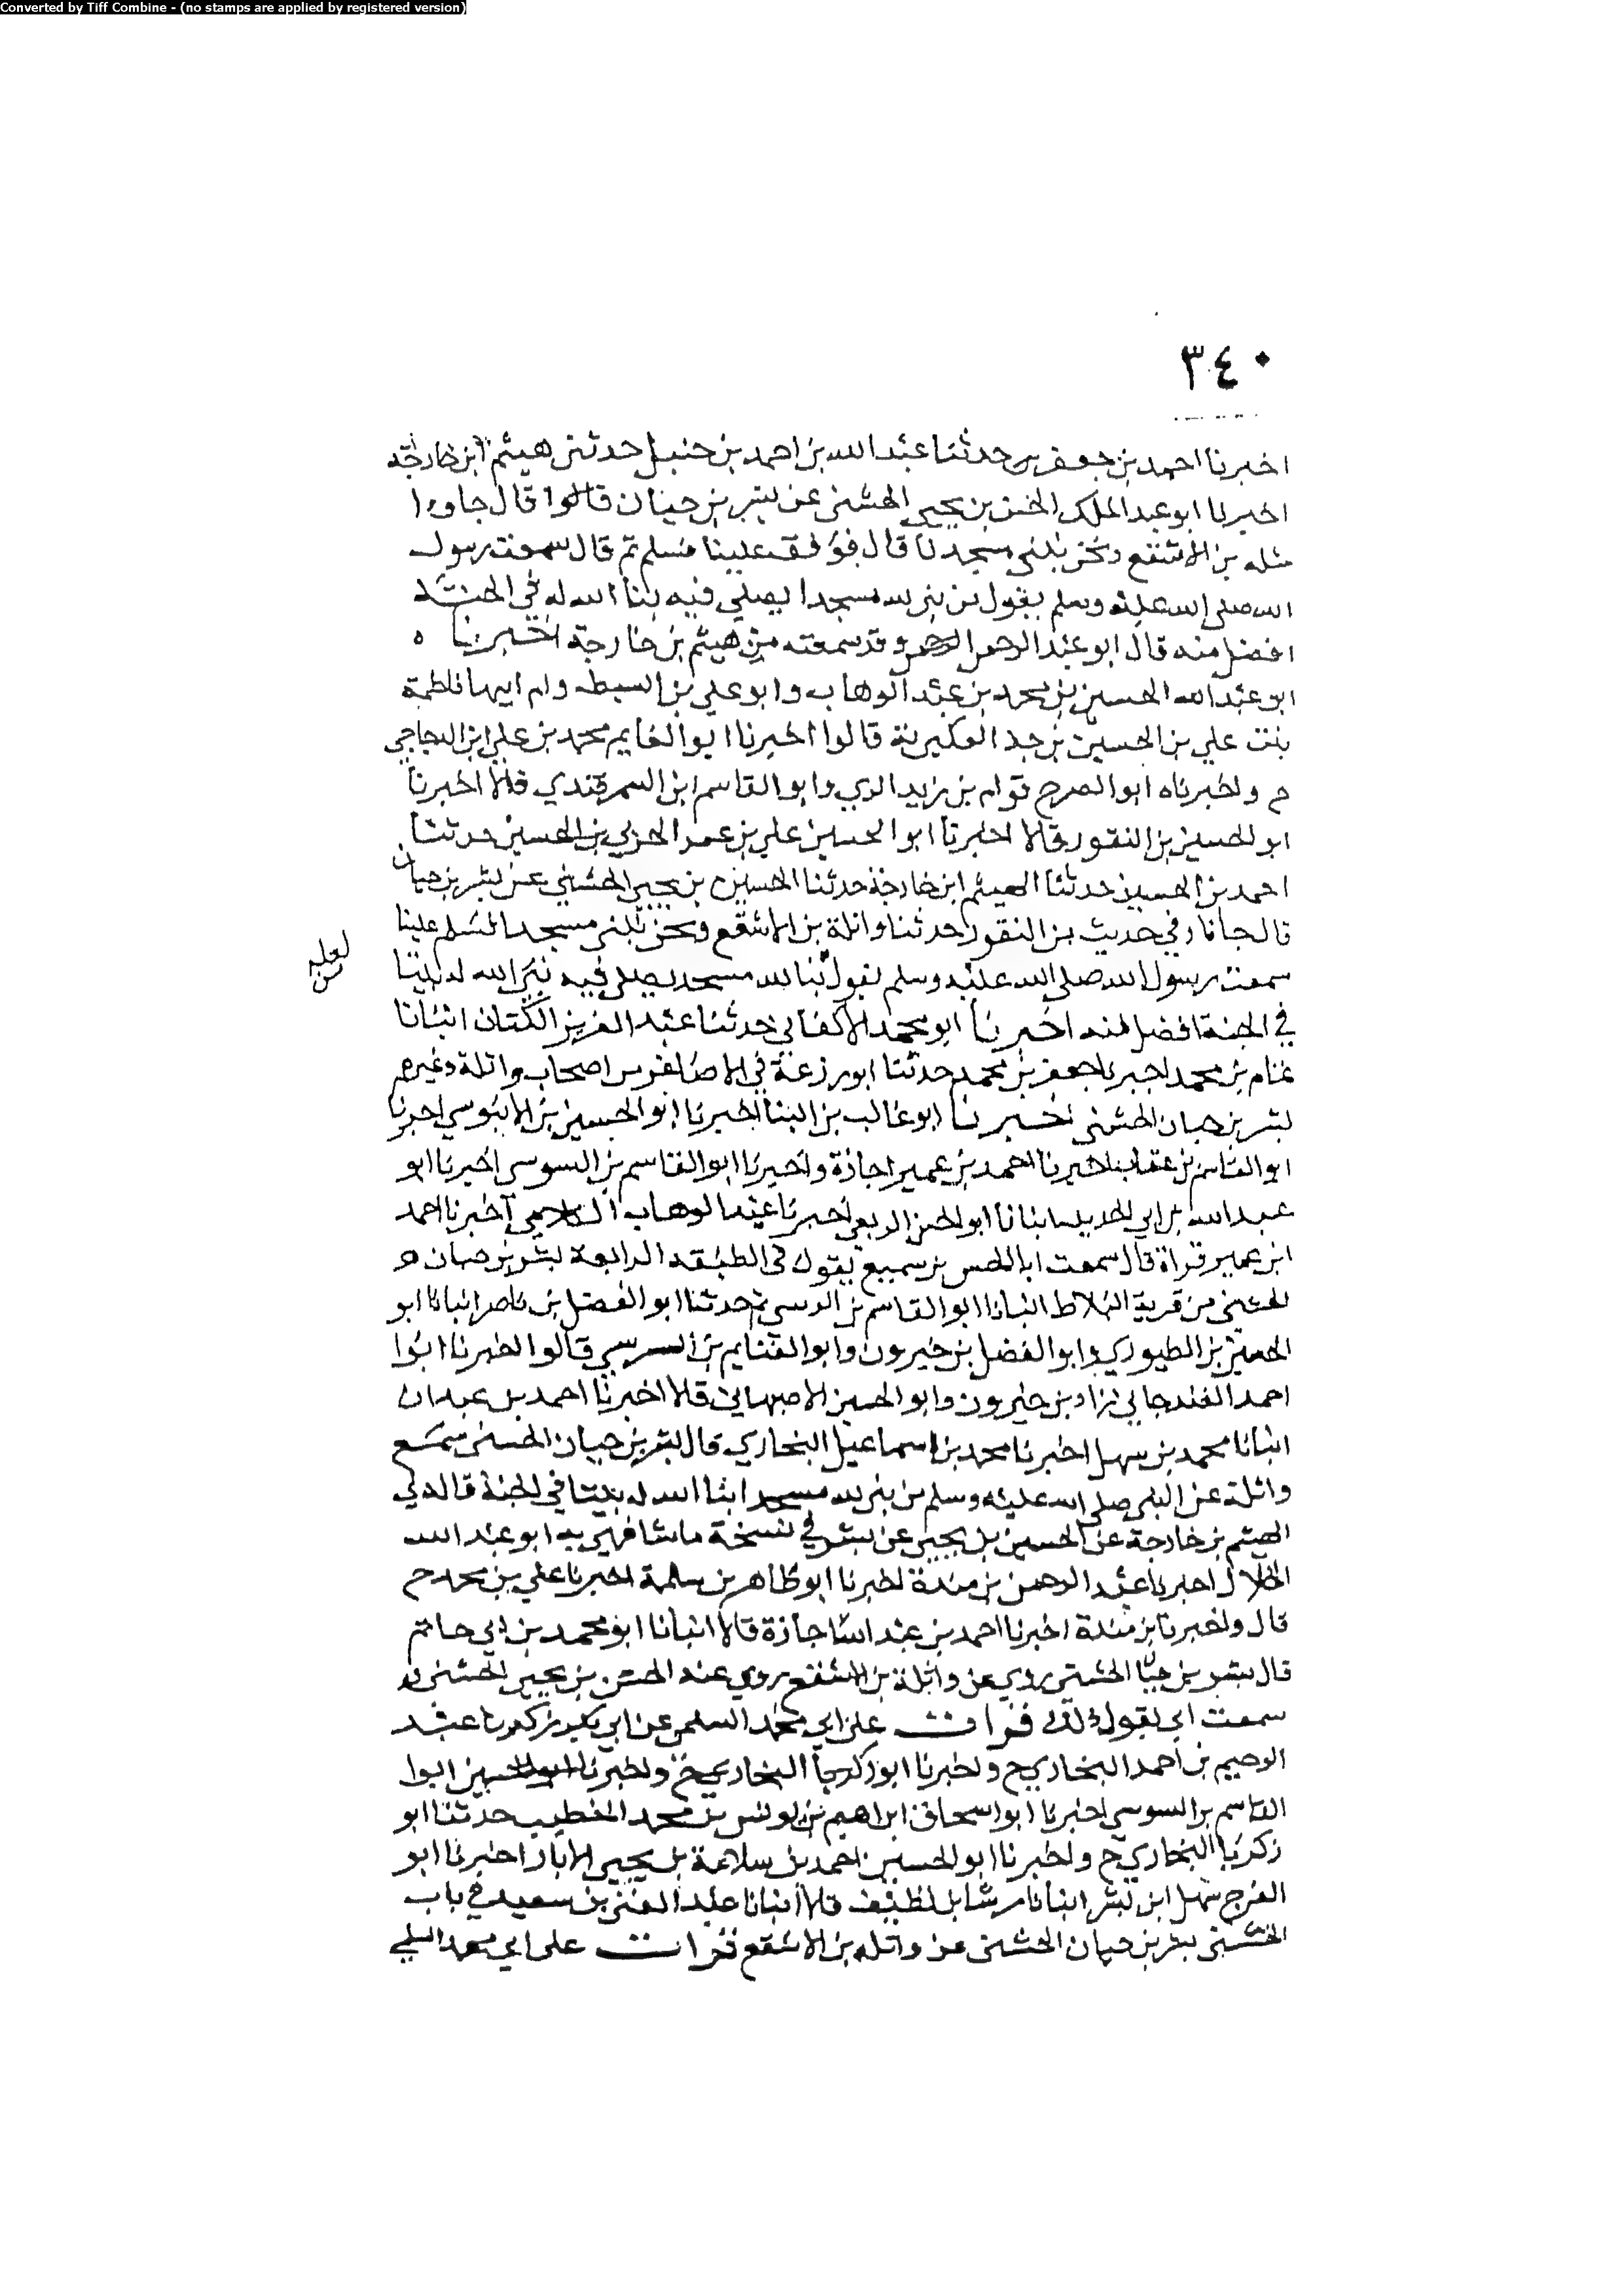 Converted by Tiff Combine - (no stamps are applied by registered version)
٣٤٠
اخبرنا احمد بن جعفر حدثنا عبد الله بن احمد بن حنبل حدثني هيثم ابن خارجة
اخبرنا ابو عبد الملك الحسن بن يحيى الخشني عن بشر بن حيان قالوا قال جاوا
مثله بن الاشقع ونحن نبني مسجدنا قال فوقف علينا فسلم ثم قال سمعت رسول
الله صلى الله عليه وسلم يقول من بنى لله مسجدا يصلي فيه بنا الله له في الجنة
افضل منه قال ابو عبد الرحمن وقد سمعته من هيثم بن خارجة اخبرنا ه
ابو عبد الله الحسين بن محمد بن عبد الوهاب وابو علي بن السبط وام ابيها فاطمة
بنت علي بن الحسين بن جدا العكبرية قالوا اخبرنا ابو الغايم محمد بن علي ابن الدجاجي
ح واخبرناه ابو الفرج قوام بن زيد المري وابو القاسم ابن السمرقندي قالا اخبرنا
ابو الحسين بن النقور قالا اخبرنا ابو الحسين علي بن عمر الحربي بن الحسين حدثنا
احمد بن الحسين حدثنا الهيثم ابن خارجة حدثنا الحسين بن يحيى الخشني عن بشر بن حيان
قال جانا وفي حديث بن النقور حدثنا واثلة بن الاشقع ونحن نبني مسجدا فسلم علينا
لعله من
سمعت رسول الله صلى الله عليه وسلم يقول بنا لله مسجد يصلي فيه بنى الله له بيتا
في الجنة افضل منه اخبرنا ابو محمد الاكفاني حدثنا عبد العزيز الكتان انبانا
تمام بن محمد اخبرنا جعفر بن محمد حدثنا ابو زرعة في الاصاغر من اصحاب واثلة وغيره
بشر بن حيان الخشني اخبرنا ابو غالب بن البنا اخبرنا ابو الحسين بن الابنوسي اخبرنا
ابو القاسم بن عتاب اخبرنا احمد بن عمير اجازة واخبرنا ابو القاسم بن السوسي اخبرنا ابو
عبد الله بن ابي الحديد انبانا ابو الحسن الربعي اخبرنا عبد الوهاب الكلابي اخبرنا احمد
ابن عمير قراة قال سمعت ابا الحسن بن سميع يقول في الطبقة الرابعة بشر بن حيان
الخشني من قرية البلاط انبانا ابو القاسم بن النرسي ثم حدثنا ابو الفضل بن ناصر انبانا ابو
الحسين بن الطيوري وابو الفضل بن خيرون وابو الغنايم بن النرسي قالوا اخبرنا ابوا
احمد الغندجاني زاد بن خيرون وابو الحسين الاصبهاني قالا اخبرنا احمد بن عبدان
انبانا محمد بن سهل اخبرنا محمد بن اسماعيل البخاري قال بشر بن حيان الخشني سمع
واثلة عن النبي صلى الله عليه وسلم من بنى لله مسجدا بنا الله له بيتا في الجنة قاله لي
الهيثم بن خارجة عن الحسين بن يحيى عن بشر في نسخة ما شافهني به ابو عبد الله
الخلال اخبرنا عبد الرحمن بن مندة اخبرنا ابو طاهر بن سلمة اخبرنا علي بن محمد ح
قال واخبرنا بن مندة اخبرنا احمد بن عبد الله اجازة قالا انبانا ابو محمد بن ابي حاتم
قال بشر بن حيان الخشني روي عن واثلة بن الاشقع روي عنه الحسن بن يحيى الخشني
سمعت ابي يقول ذلك قرات على ابي محمد السلمي عن ابي زكريا عبد
الرحيم بن احمد البخاري ح واخبرنا ابو زكريا البخاري ح واخبرنا ابو الحسين ابوا
القاسم بن السوسي اخبرنا ابو اسحاق ابراهيم بن يونس بن محمد الخطيب حدثنا ابو
زكريا البخاري ح واخبرنا ابو الحسين احمد بن سلامة بن يحيى الابار اخبرنا ابو
الفرج سهل ابن بشر انبانا رشا بن نظيف قالا انبانا عبد الغني بن سعيد في باب
الخشني بشر بن حيان الخشني عن واثلة بن الاشقع قرات على ابي محمد السلمي